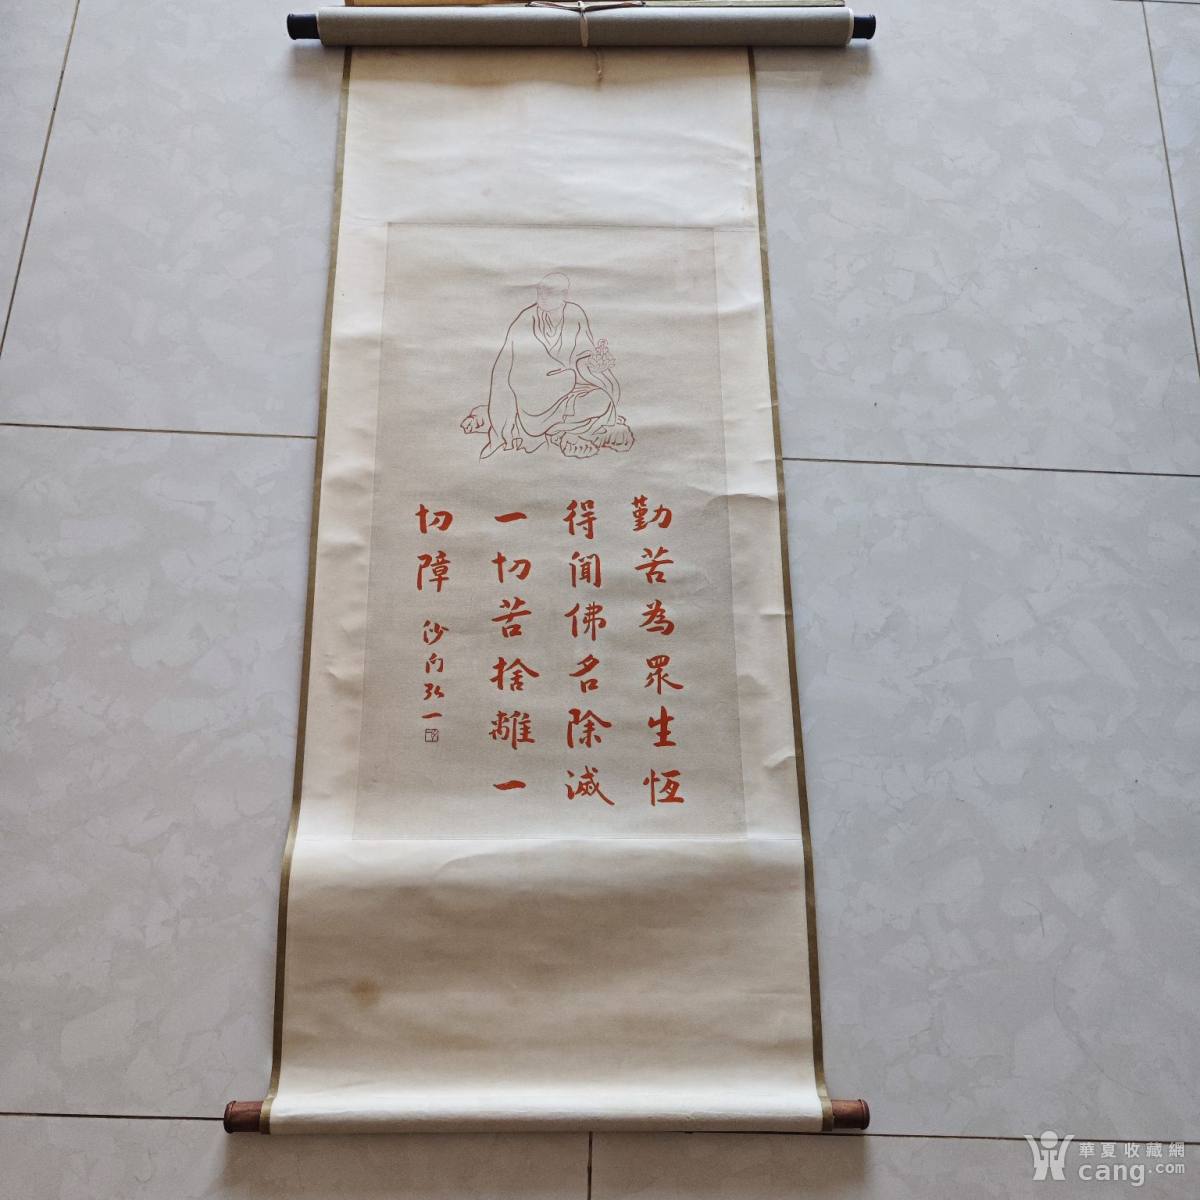 勤苦為眾生恆
得聞佛名除滅
一切苦捨離一
切障
沙门弘一
華夏收藏網
cang.com